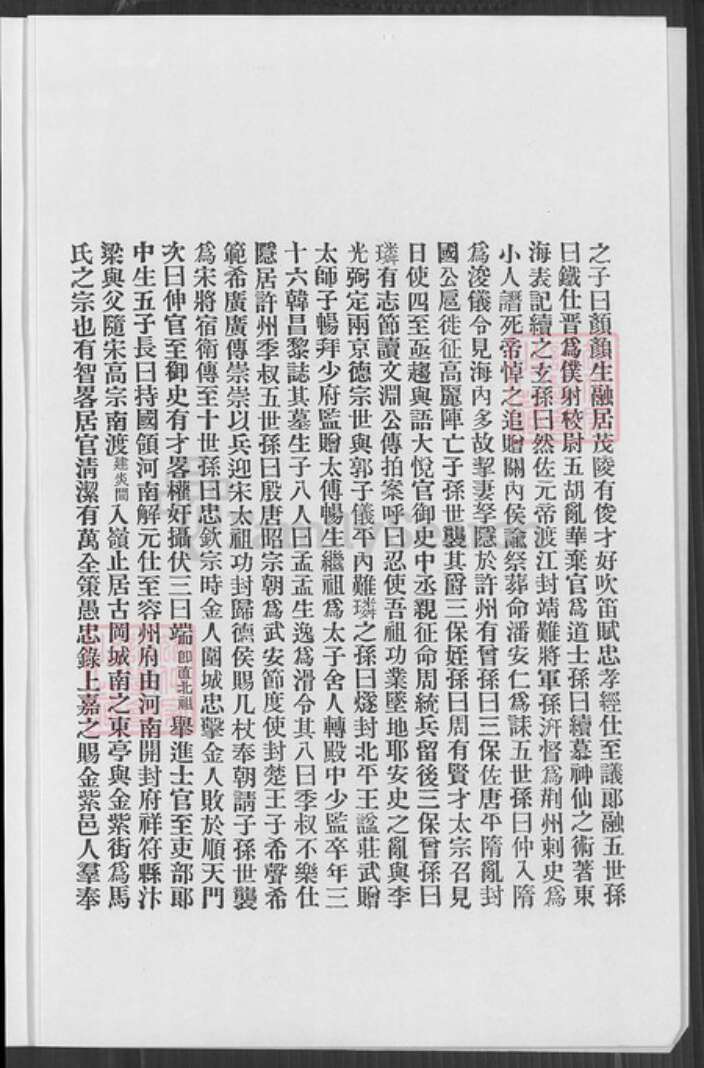 之子曰顏顏生融居茂陵有俊才好吹笛賦忠孝經仕至議郎融五世孫
曰鐵仕晋爲僕射校尉五胡亂華棄官爲道士孫曰續慕神仙之術著東
海表記續之玄孫曰然佐元帝渡江封靖難將軍孫洴督爲荆州刺史爲
小人譖死帝悼之追贈關內侯諭祭葬命潘安仁爲誄五世孫曰仲入隋
爲浚儀令見海內多故挈妻孥隱於許州有曾孫曰三保佐唐平隋亂封
國公扈徙征高麗陣亡子孫世襲其爵三保姪孫曰周有賢才太宗召見
日使四至亟趨與語大悅官御史中丞親征命周統兵留後三保曾孫曰
璘有志節讀文淵公傳拍案呼曰忍使吾祖功業墜地耶安史之亂與李
光弼定兩京德宗世與郭子儀平內難璘之孫曰燧封北平王諡莊武贈
太師子暢拜少府監贈太傅暢生繼祖爲太子舍人轉殿中少監卒年三
十六韓昌黎誌其墓生子八人曰孟孟生逸爲滑令其八曰季叔不樂仕
隱居許州季叔五世孫曰殷唐昭宗朝爲武安節度使封楚王子希聲希
範希廣廣傳崇崇以兵迎宋太祖功封歸德侯賜几杖奉朝請子孫世襲
爲宋將宿衛傳至十世孫曰忠欽宗時金人圍城忠擊金人敗於順天門
次曰伸官至御史有才畧權奸攝伏三曰端卽直北祖舉進士官至吏部郎
中生五子長曰持國領河南解元仕至容州府由河南開封府祥符縣汴
梁與父隨宋高宗南渡建炎間入嶺止居古岡城南之東亭與金紫街爲馬
氏之宗也有智畧居官清潔有萬全策愚忠錄上嘉之賜金紫邑人羣奉